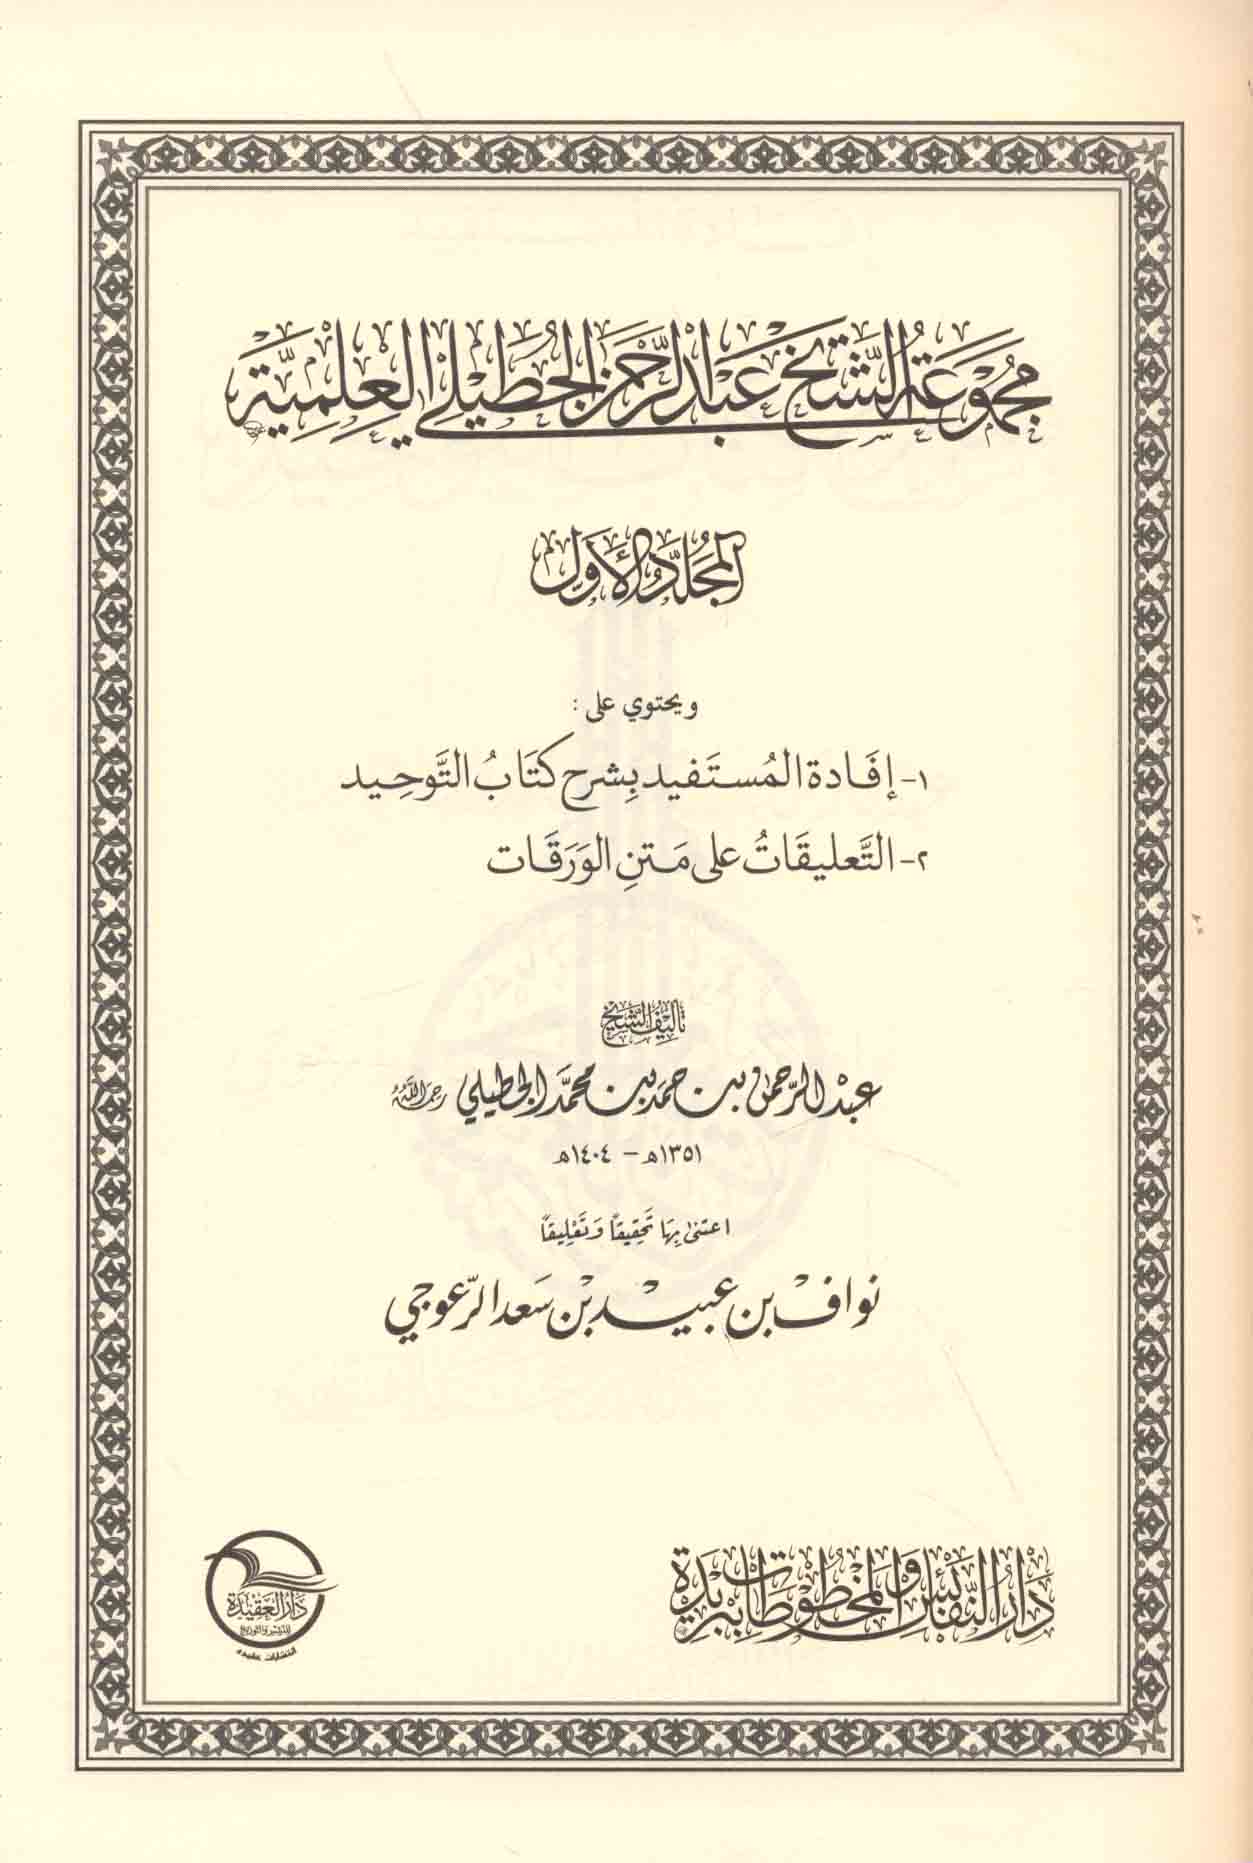 مجموعة الشيخ عبد الرحمن الجطيلي العلمية
المجلد الأول
ويحتوي على :
١- إفَادة المُستَفيد بِشرح كتَابُ التَّوحِيد
٢- التَّعليقَاتُ على مَتنِ الوَرَقَات
تأليف الشيخ
عبد الرحمن بن حمد بن محمد الجطيلي رحمه الله
١٣٥١هـ - ١٤٠٤هـ
اعتنى بِهَا تحقِيقاً وَتَعْلِيقاً
نواف بن عبيد بن سعد الرعوجي
دار النفائس والمخطوطات ببريدة
دار العقيدة
للنشر والتوزيع
انتشارات عقیده